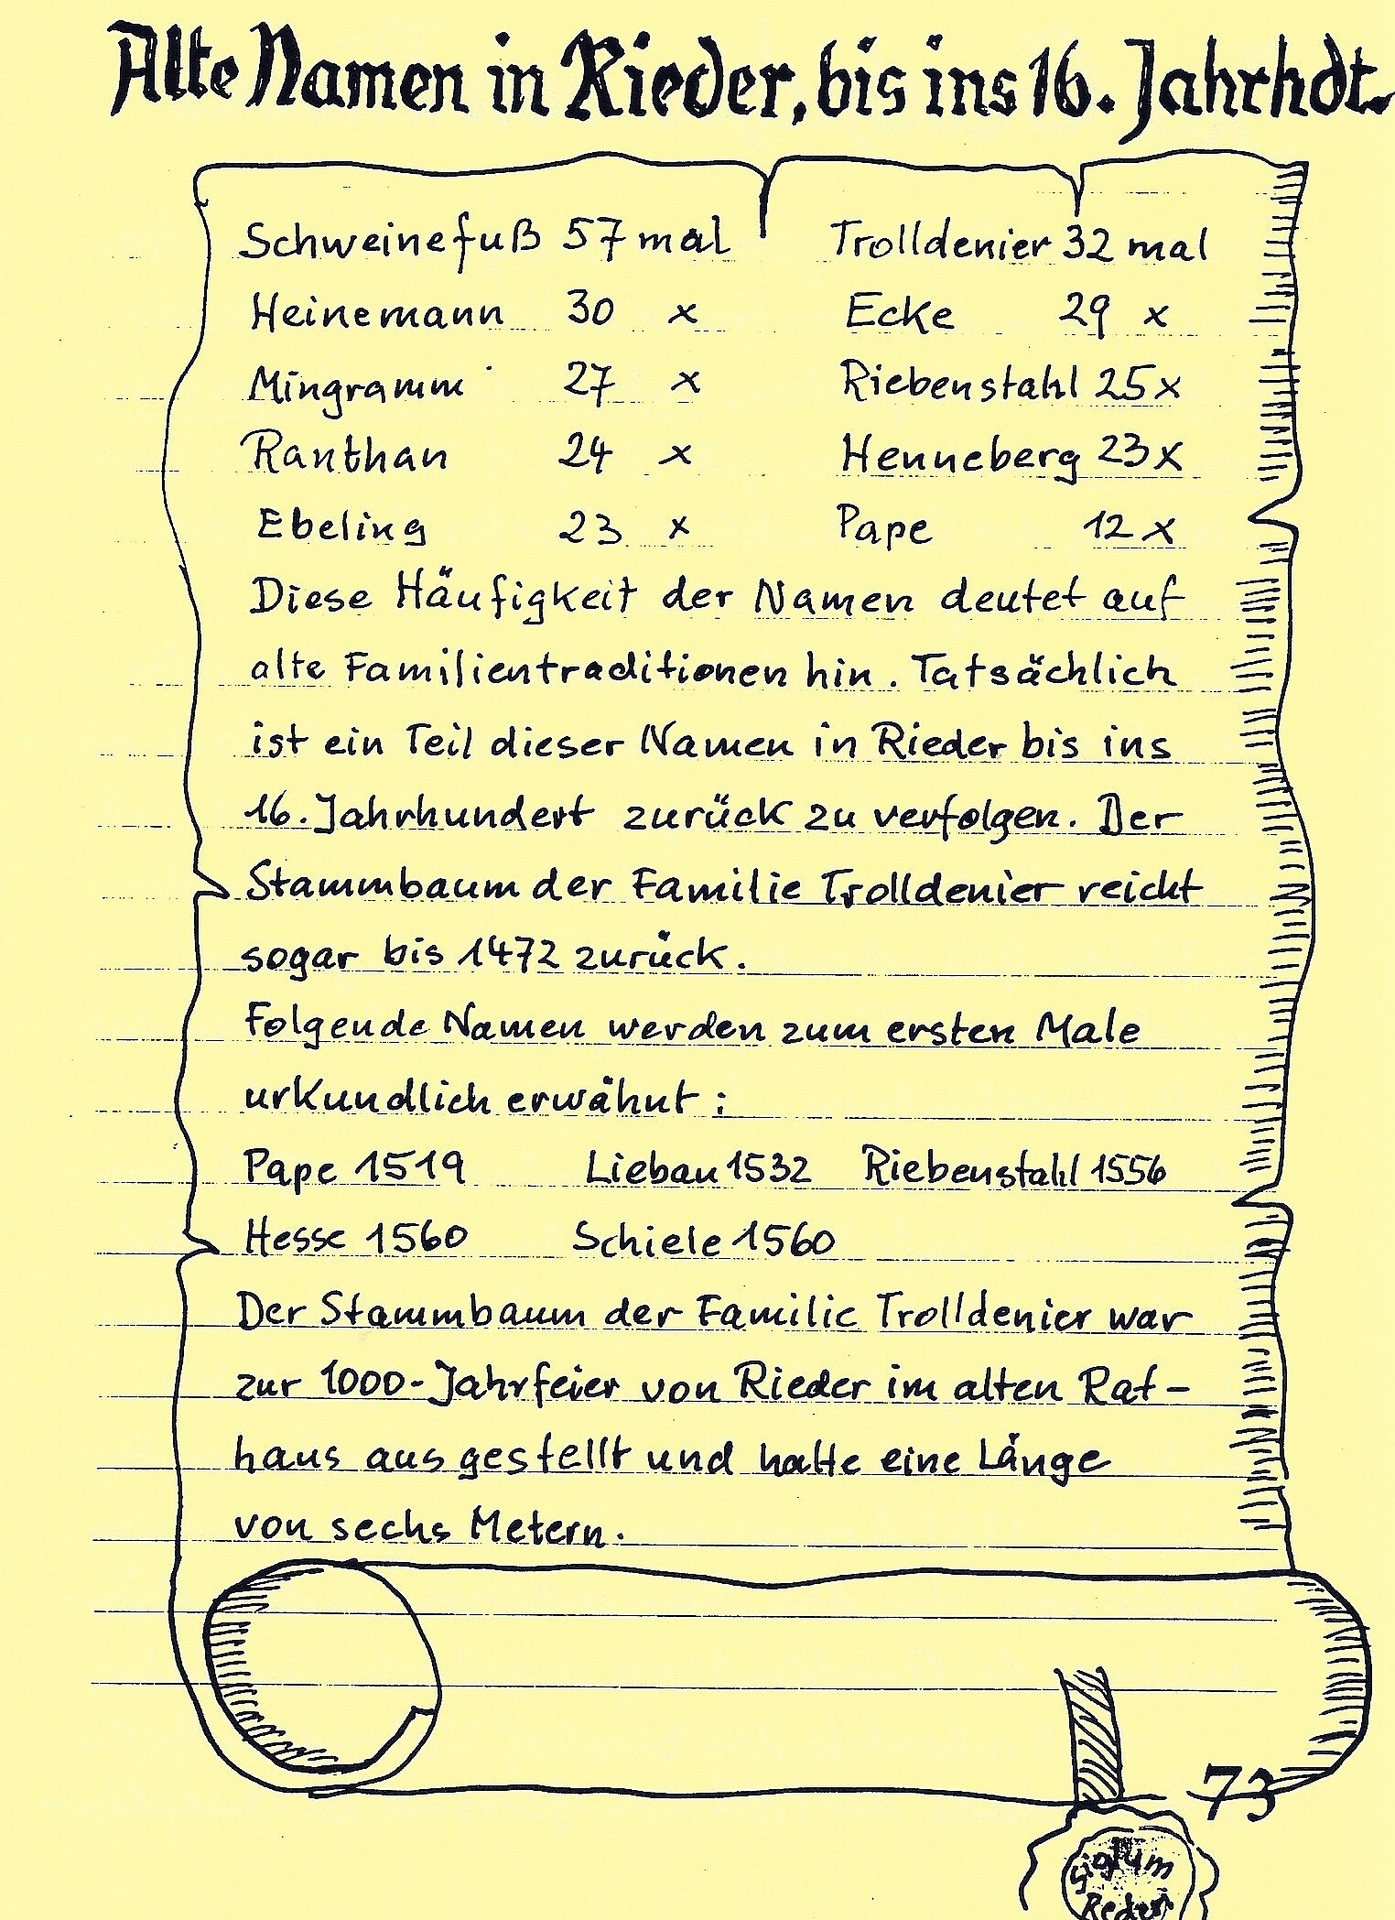 Alte Namen in Rieder, bis ins 16. Jahrhdt.
Schweinefuß 57 mal Trolldenier 32 mal
Heinemann 30 x Ecke 29 x
Mingramm 27 x Riebenstahl 25 x
Ranthan 24 x Henneberg 23 x
Ebeling 23 x Pape 12 x
Diese Häufigkeit der Namen deutet auf
alte Familientraditionen hin. Tatsächlich
ist ein Teil dieser Namen in Rieder bis ins
16. Jahrhundert zurück zu verfolgen. Der
Stammbaum der Familie Trolldenier reicht
sogar bis 1472 zurück.
Folgende Namen werden zum ersten Male
urkundlich erwähnt:
Pape 1519 Liebau 1532 Riebenstahl 1556
Hesse 1560 Schiele 1560
Der Stammbaum der Familie Trolldenier war
zur 1000-Jahrfeier von Rieder im alten Rat-
haus ausgestellt und hatte eine Länge
von sechs Metern.
73